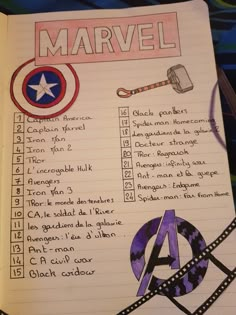 MARVEL
1 Captain America
2 Captain Marvel
3 Iron Man
4 Iron Man 2
5 Thor
6 L'incroyable Hulk
7 Avengers
8 Iron Man 3
9 Thor: le monde des tenebres
10 CA, le soldat de l'hiver
11 les gardiens de la galaxie
12 Avengers: l'ère d'ultron
13 Ant-man
14 CA civil war
15 Black widow
16 Black panther
17 Spider-man: Homecoming
18 Les gardiens de la galaxie 2
19 Docteur strange
20 Thor: Ragnarok
21 Avengers: infinity war
22 Ant-man et la guêpe
23 Avengers: Endgame
24 Spider-man: Far From Home